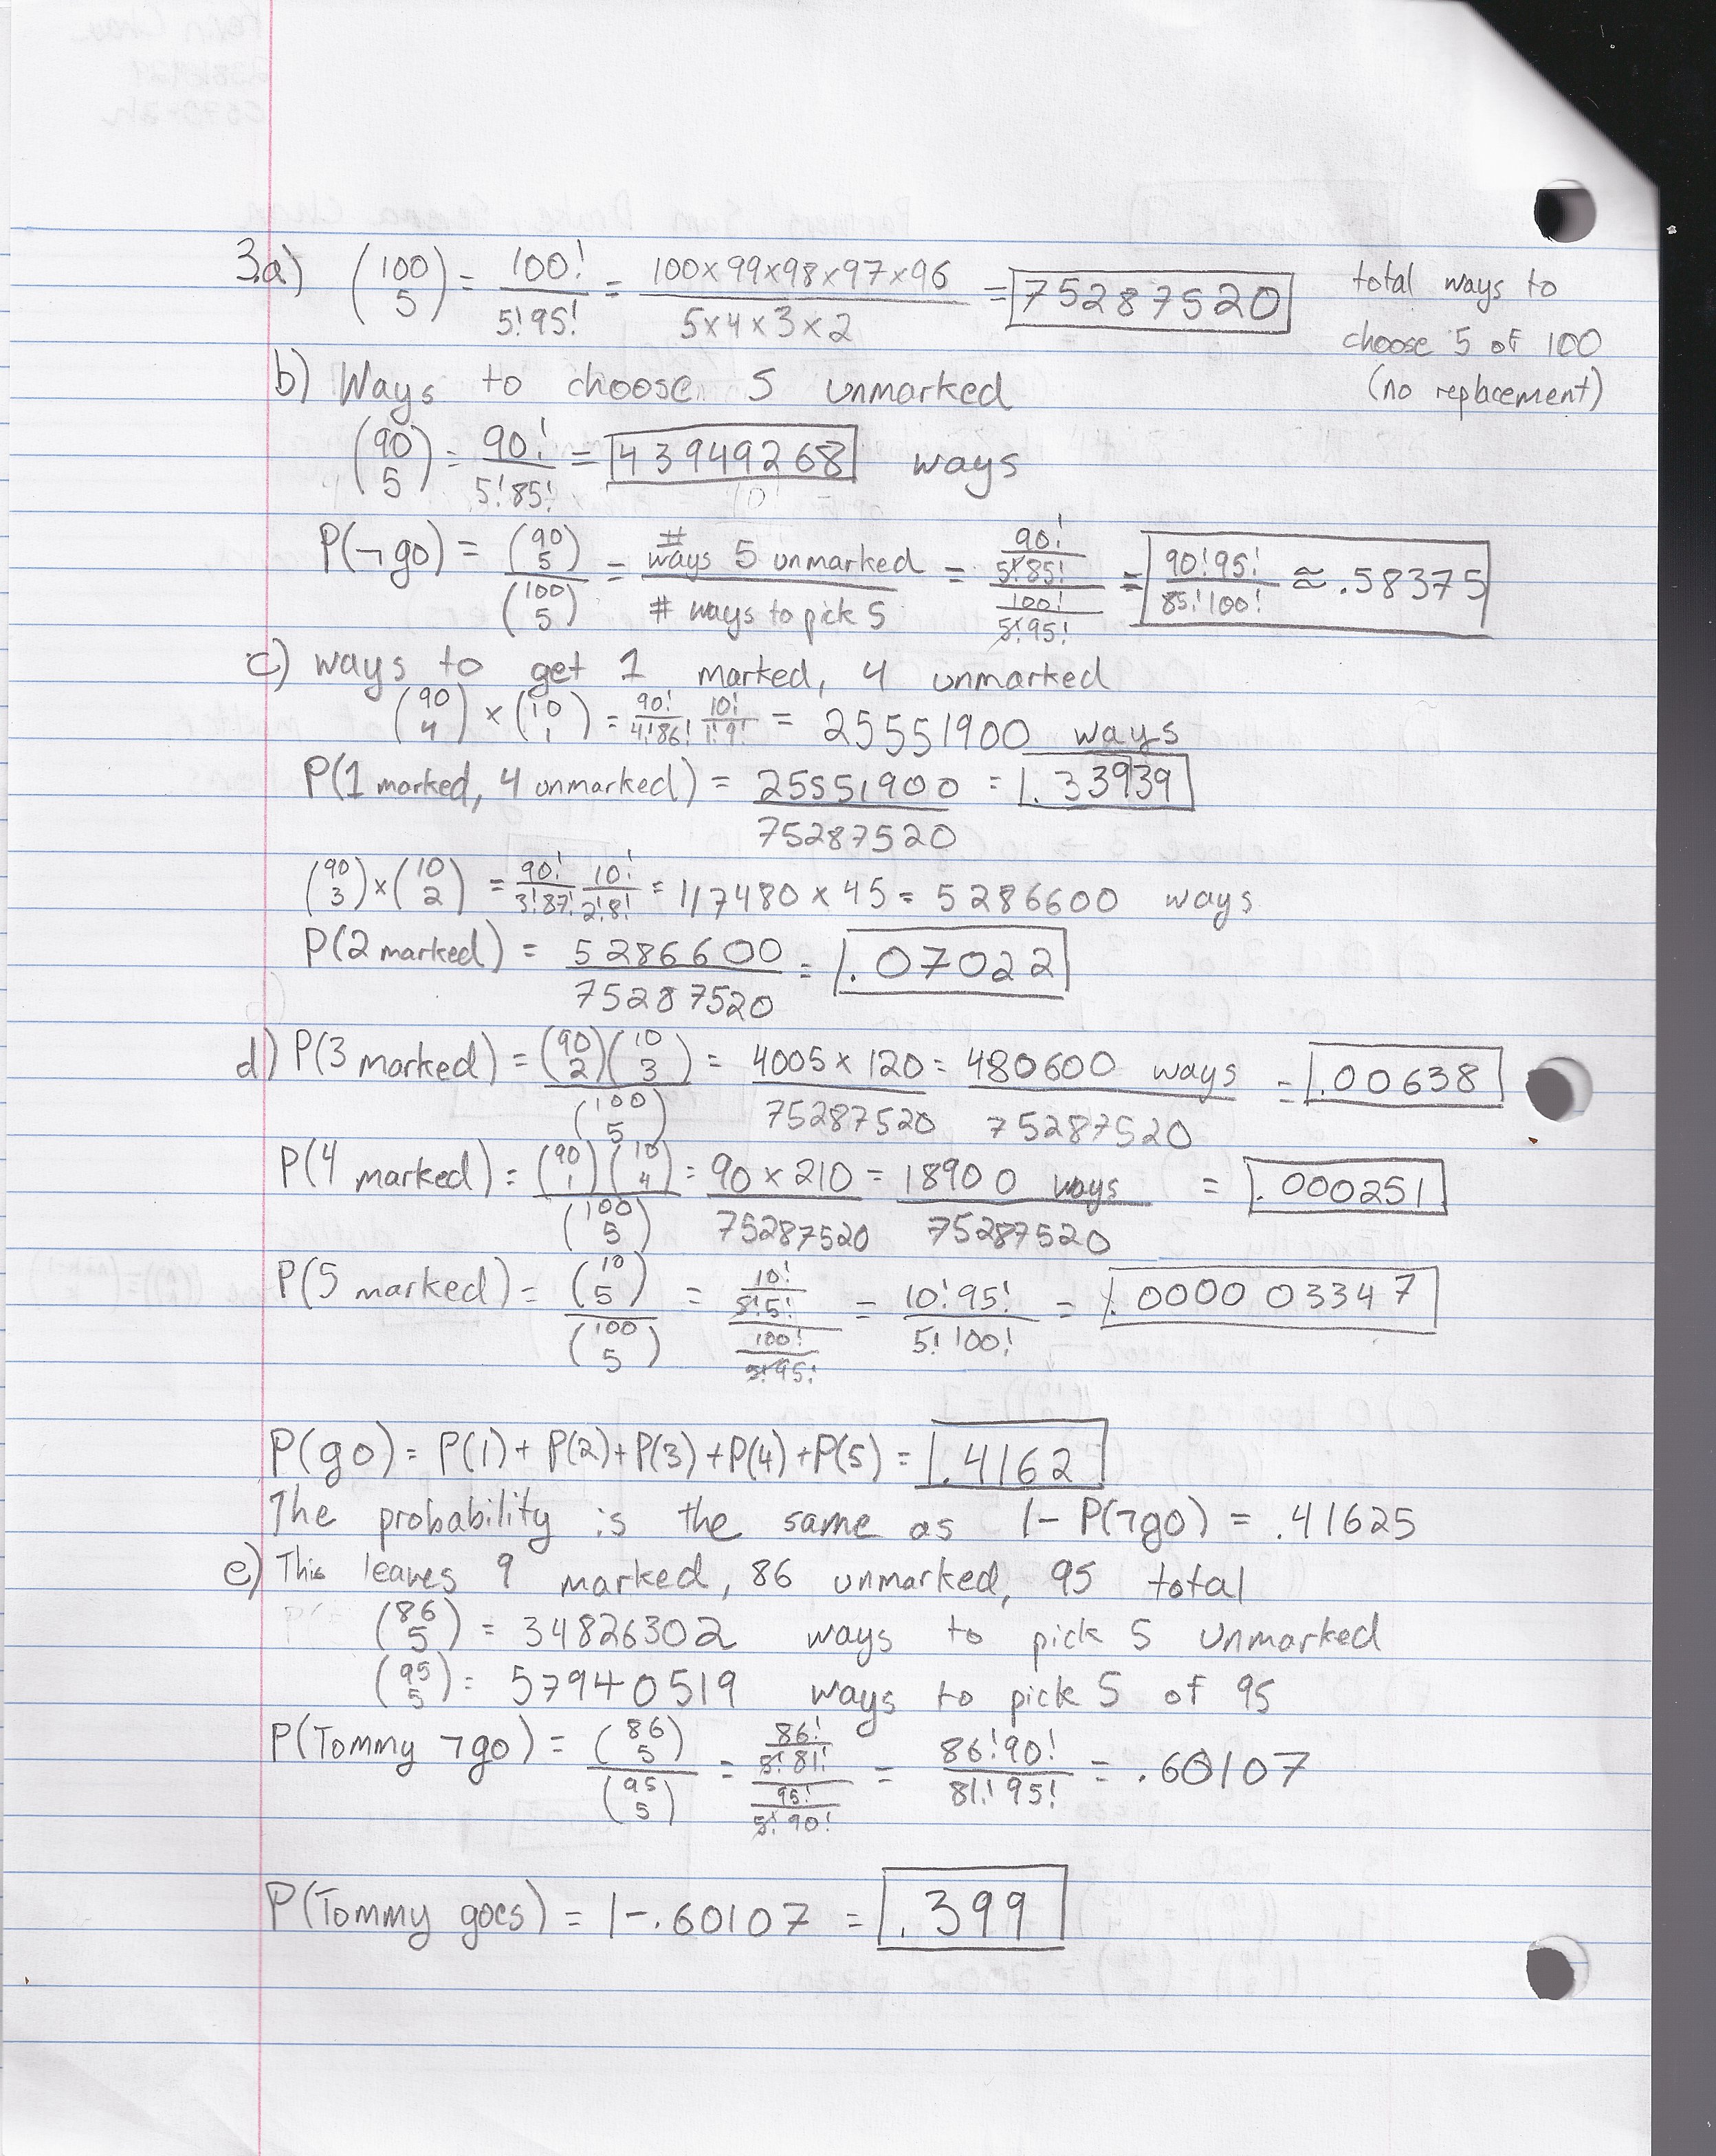 3.a) (100 5) = 100! / 5! 95! = 100×99×98×97×96 / 5×4×3×2 = 75287520 total ways to
choose 5 of 100
(no replacement)
b) Ways to choose 5 unmarked
(90 5) = 90! / 5! 85! = 43949268 ways
P(¬go) = (90 5) / (100 5) = # ways 5 unmarked / # ways to pick 5 = 90! / 5! 85! / 100! / 5! 95! = 90! 95! / 85! 100! ≈ .58375
c) ways to get 1 marked, 4 unmarked
(90 4) × (10 1) = 90! / 4! 86! 10! / 1! 9! = 25551900 ways
P(1 marked, 4 unmarked) = 25551900 / 75287520 = .33939
(90 3) × (10 2) = 90! / 3! 87! 10! / 2! 8! = 117480 × 45 = 5286600 ways
P(2 marked) = 5286600 / 75287520 = .07022
d) P(3 marked) = (90 2)(10 3) / (100 5) = 4005 × 120 / 75287520 = 480600 ways / 75287520 = .00638
P(4 marked) = (90 1)(10 4) / (100 5) = 90 × 210 / 75287520 = 18900 ways / 75287520 = .000251
P(5 marked) = (10 5) / (100 5) = 10! / 5! 5! / 100! / 5! 95! = 10! 95! / 5! 100! = .000003347
P(go) = P(1) + P(2) + P(3) + P(4) + P(5) = .4162
The probability is the same as 1 - P(¬go) = .41625
e) This leaves 9 marked, 86 unmarked, 95 total
(86 5) = 34826302 ways to pick 5 unmarked
(95 5) = 57940519 ways to pick 5 of 95
P(Tommy ¬go) = (86 5) / (95 5) = 86! / 5! 81! / 95! / 5! 90! = 86! 90! / 81! 95! = .60107
P(Tommy goes) = 1 - .60107 = .399